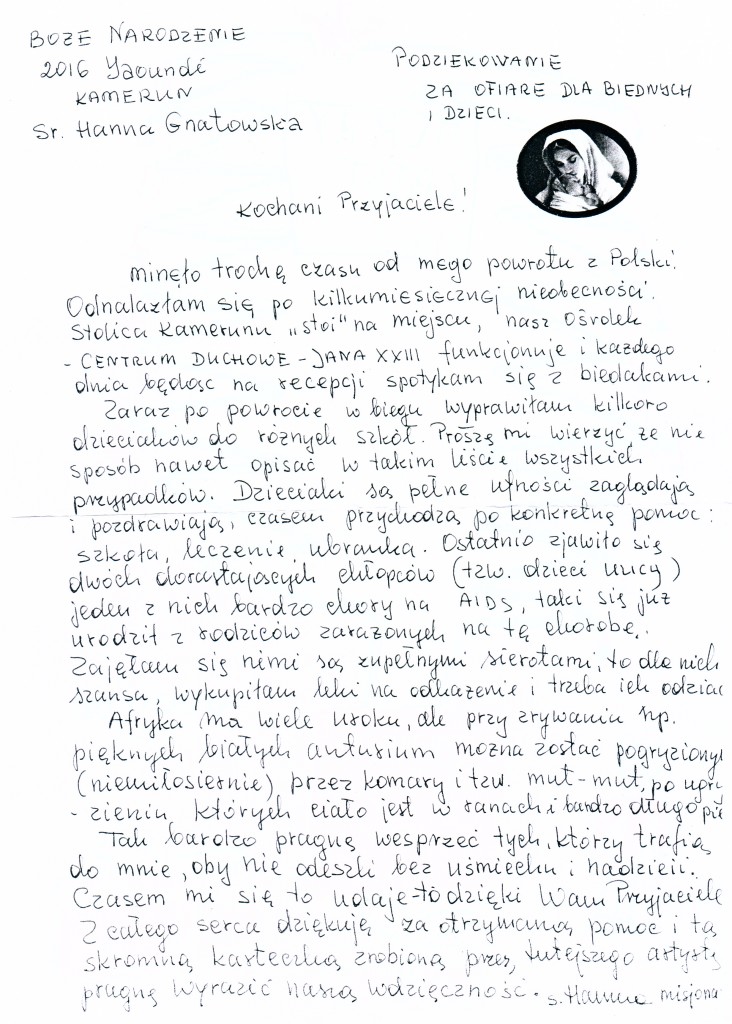 BOŻE NARODZENIE
2016 Yaoundé
KAMERUN
Sr. Hanna Gnatowska
PODZIEKOWANIE
ZA OFIARE DLA BIEDNYCH
I DZIECI.
Kochani Przyjaciele!
minęło trochę czasu od mego powrotu z Polski.
Odnalazłam się po kilkumiesięcznej nieobecności.
Stolica Kamerunu „stoi" na miejscu, nasz Ośrodek
- CENTRUM DUCHOWE - JANA XXIII funkcjonuje i każdego
dnia będąc na recepcji spotykam się z biedakami.
Zaraz po powrocie w biegu wyprawiłam kilkoro
dzieciaków do różnych szkół. Proszę mi wierzyć, że nie
sposób nawet opisać w takim liście wszystkich
przypadków. Dzieciaki są pełne ufności zaglądają
i pozdrawiają, czasem przychodzą po konkretną pomoc:
szkoła, leczenie, ubranka. Ostatnio zjawiło się
dwóch dorastających chłopców (tzw. dzieci ulicy)
jeden z nich bardzo chory na AIDS, taki się już
urodził z rodziców zarażonych na tę chorobę.
Zajęłam się nimi są zupełnymi sierotami, to dla nich
szansa, wykupiłam leki na odkażenie i trzeba ich odziać
Afryka ma wiele uroku, ale przy zrywaniu np.
pięknych białych anturium można zostać pogryzionym
(niemiłosiernie) przez komary i tzw. mut-mut, po ugry
- zieniu, których ciało jest w ranach i bardzo długo
Tak bardzo pragnę wesprzeć tych, którzy trafią
do mnie, oby nie odeszli bez uśmiechu i nadzieii.
Czasem mi się to udaje - to dzięki Wam Przyjaciele
Z całego serca dziękuję za otrzymaną pomoc i tą
skromną karteczką zrobioną przez tutejszego artystę
pragnę wyrazić naszą wdzięczność. s. Hanna misjona